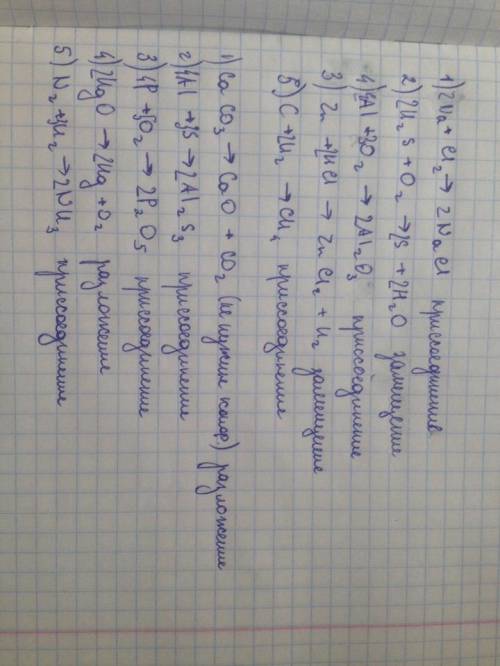 1) 2Na + Cl₂ → 2NaCl присоединение
2) 2H₂S + O₂ → 2S + 2H₂O замещение
4) 4Al + 3O₂ → 2Al₂O₃ присоединение
3) Zn + 2HCl → ZnCl₂ + H₂ замещение
5) C + 2H₂ → CH₄ приссоединение
1) CaCO₃ → CaO + CO₂ (не нужен коэф.) разложение
2) 4Al + 3S → 2Al₂S₃ приссоединение
3) 4P + 5O₂ → 2P₂O₅ присоединение
4) 2HgO → 2Hg + O₂ разложение
5) N₂ + 3H₂ → 2NH₃ приссоединение